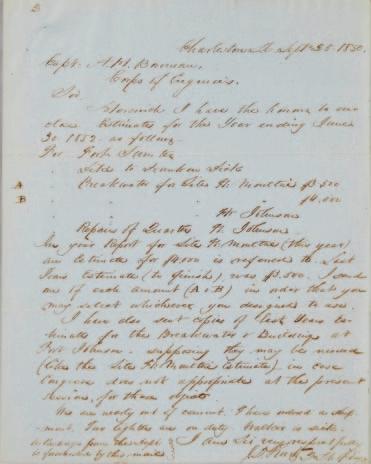 Charleston Sept 25 1850.
Capt. A. H. Bowman,
Corps of Engineers.
Sir
Herewith I have the honor to en-
close Estimates for the Year ending June
30 1852 as follows
For Fort Sumter
Sites to
A Breakwater for Sites Ft. Moultrie $3.500
B $4.000
Ft Johnson
Repairs of Quarters Ft. Johnson
In your Report for Sites Ft. Moultrie (this year)
an Estimate for $4.000 is referred to. Last
Years Estimate (to finish) was $3.500. I send
one of each amount (A & B) in order that you
may select whichever you designed to use.
I have also sent copies of last Years Es-
timates for the Breakwater & Buildings at
Fort Johnson. supposing they may be
(like the Sites Ft. Moultrie Estimate) in case
Congress does not appropriate at the present
Session, for those objects.
We are nearly out of cement. I have ordered a ship-
ment. Two lighters are on duty. is sick.
I am Sir very respectfully
by this mail